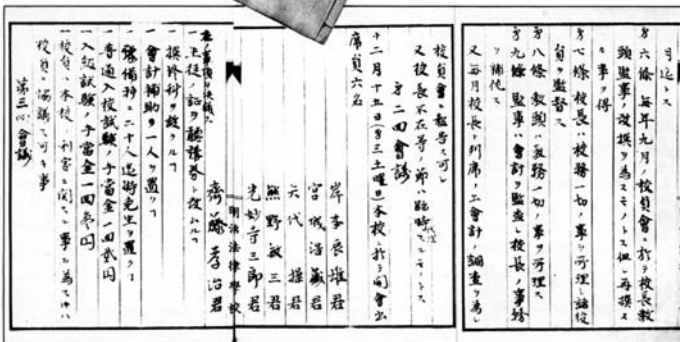 月迄トス
第六條 毎年九月ノ校員會ニ於テ校長教
頭監事ノ改撰ヲ為スモノトス但シ再撰ス
ル事ヲ得
第七條 校長ハ校務一切ノ事ヲ所理シ諸役
員ヲ監督ス
第八條 教頭ハ教務一切ノ事ヲ所理ス
第九條 監事ハ會計ヲ監査シ校長ノ事務
ヲ補佐ス
又毎月校長ノ列席ノ上會計ノ調査ヲ為シ
校員會ニ報告ス可シ
又校長不在等ノ節ハ臨時代理スルモノトス
第二回會議
十二月十五日(第三土曜日)本校ニ於テ開會出
席員六名
岸本辰雄君
宮城浩蔵君
矢代操君
熊野敏三君
光妙寺三郎君
明治法律學校
齋藤孝治君
左ノ事項ヲ決議ス
一生徒ノ証ヲ聽講券ト改ムル
一撰科ヲ設クル
一會計補助ヲ一人ヲ置ク
一豫備科ニ二十人
一普通入校試驗ノ手當金一回貳円
一入級試驗ノ手當金一回参円
一校員ハ本校ノ利害ニ関スル事ヲ為ス
校員ノ協議ス可キ事
第三回會議